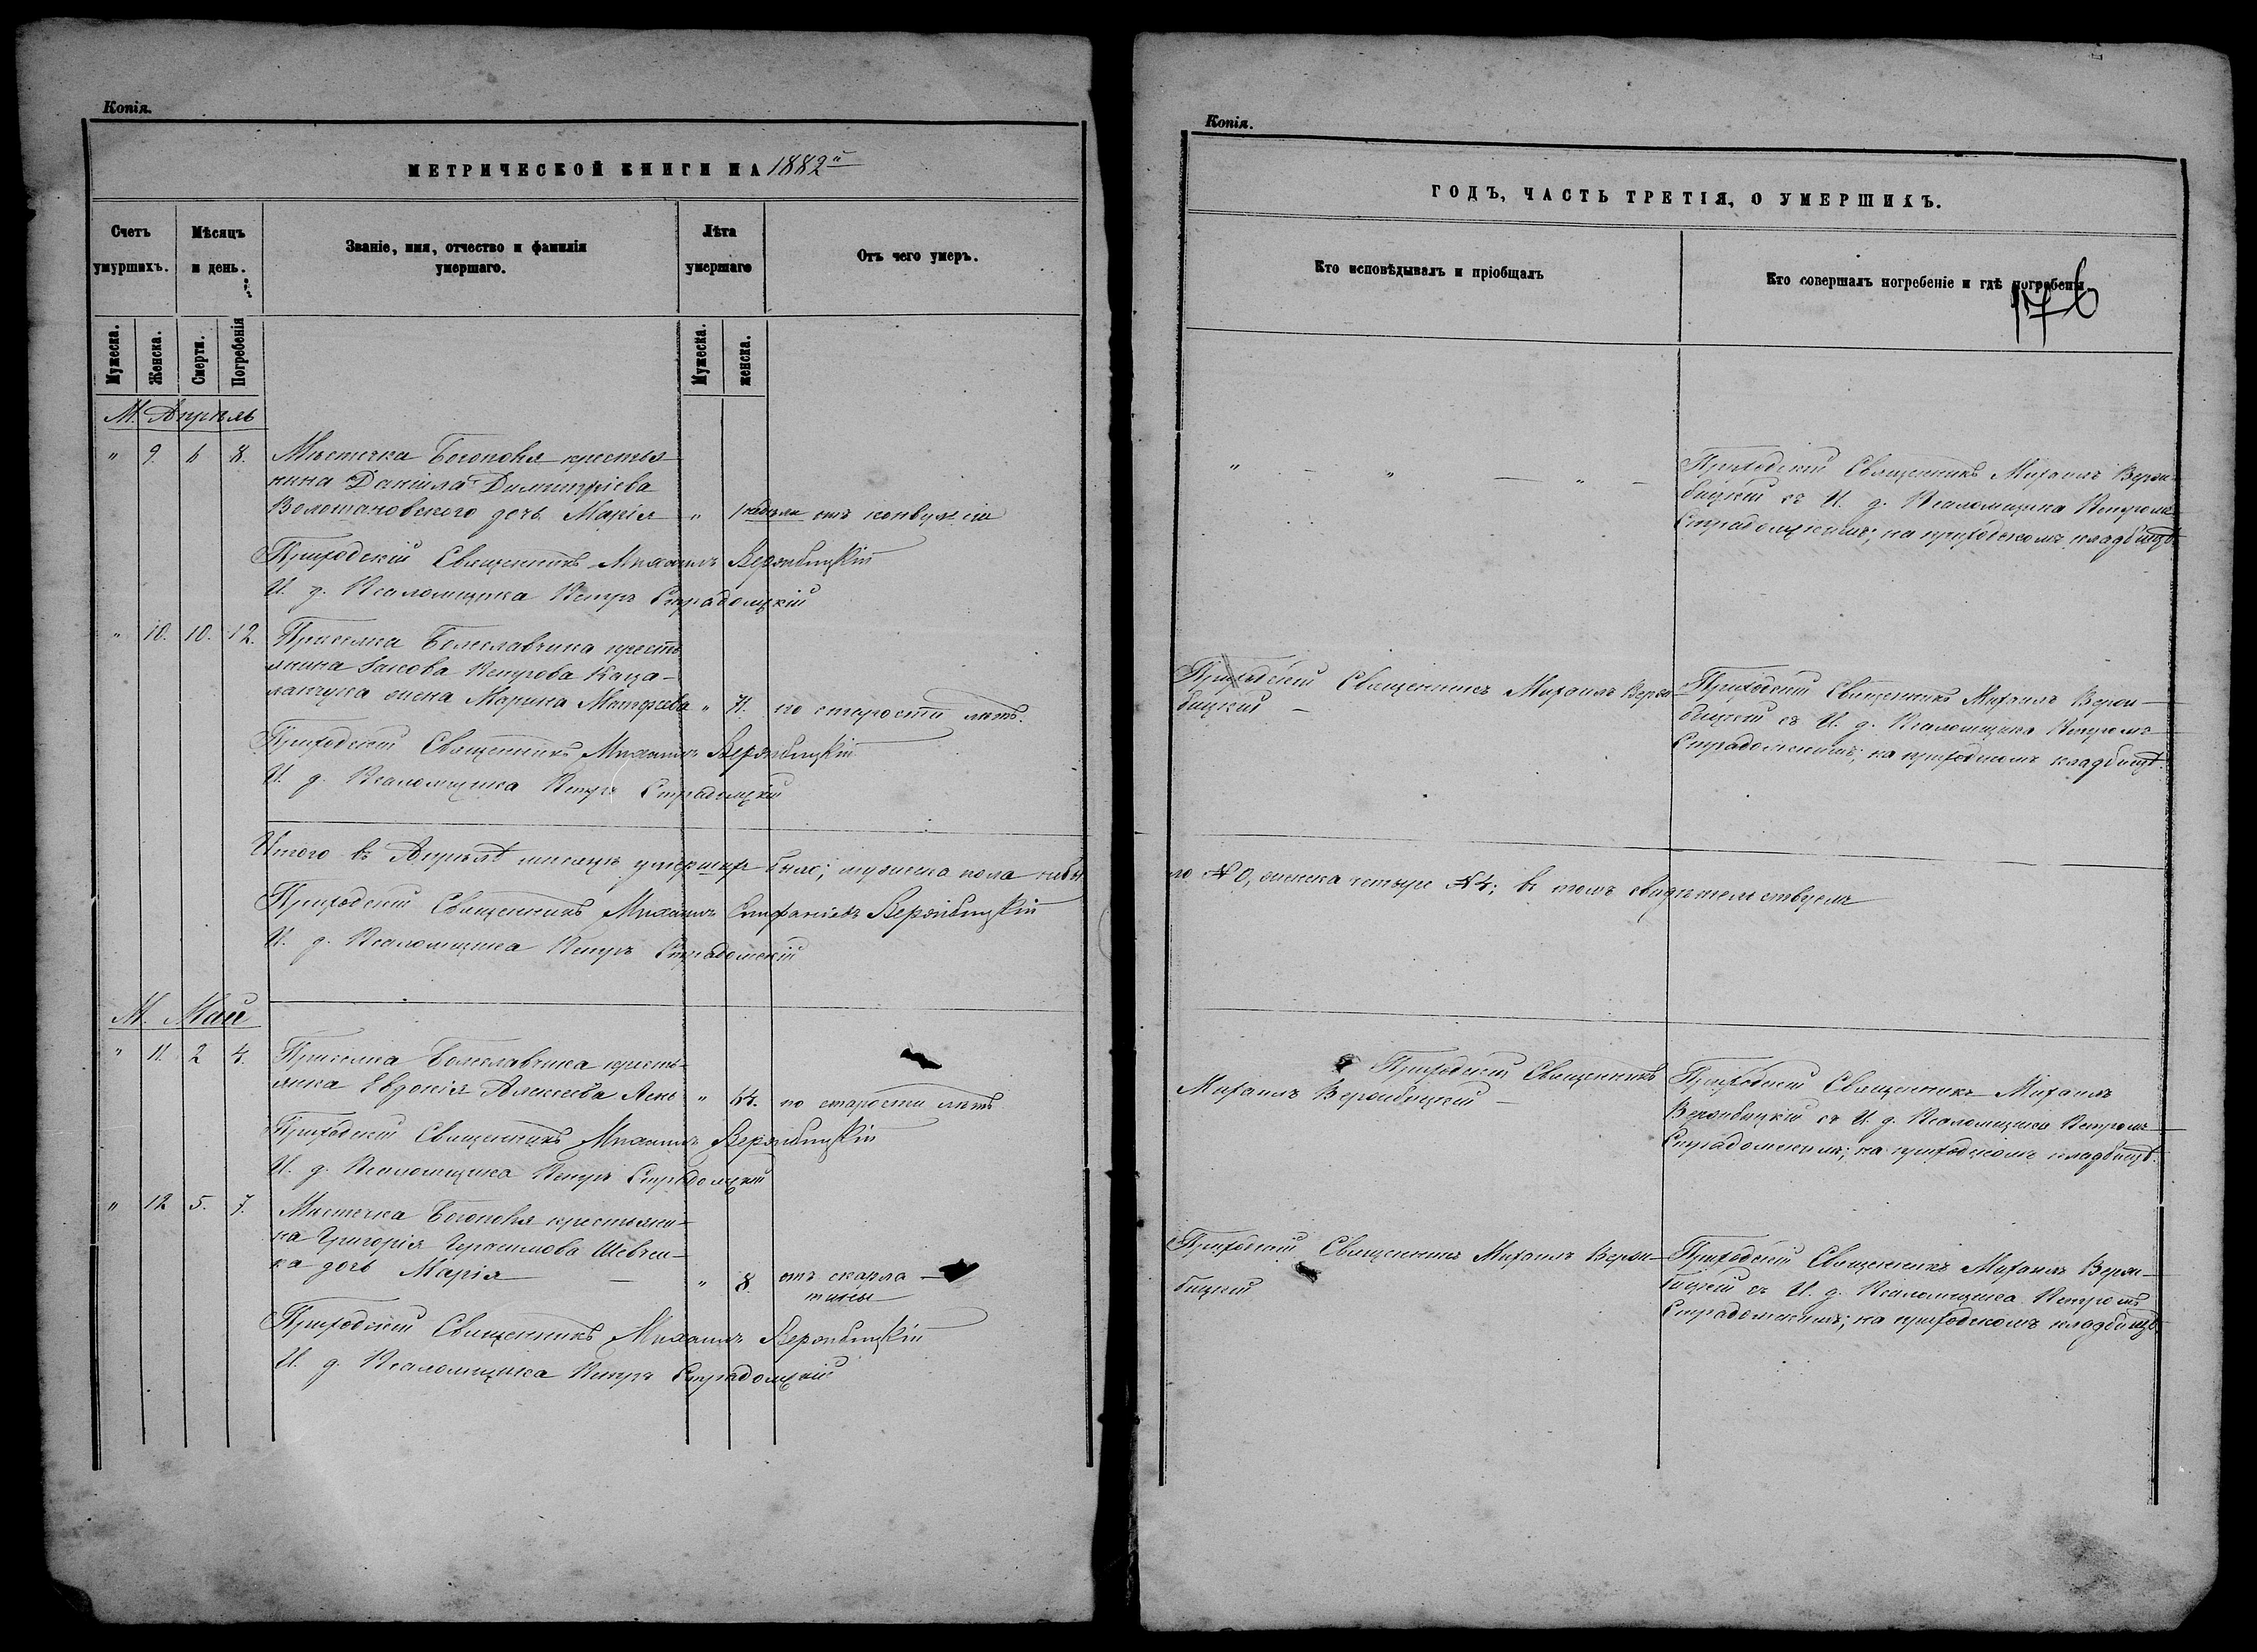 Копія.
МЕТРИЧЕСКОЙ КНИГИ НА 1882й
Счетъ умуршихъ.
Мѣсяцъ и день.
Званіе, имя, отчество и фамилія умершаго.
Лѣта умершаго
Отъ чего умеръ.
Мужеска.
Женска.
Смерти.
Погребенія
Мужеска.
женска.
М. Апрѣль
" 9. 6 8. Мѣстечка Богополя крестья-
нина Даніила Димитріева
дочь Марія " 1 недѣли отъ конвульсіи
Приходскій Священникъ Михаилъ Вербицкій
И. д. Псаломщика Петръ Страдомскій
" 10. 10. 12. Приселка Болеславчика кресть
янина Іакова Петрова Каца-
жена Марина Матфеева " 71. по старости лѣтъ.
Приходскій Священникъ Михаилъ Вербицкій
И. д. Псаломщика Петръ Страдомскій
Итого въ Апрѣлѣ мѣсяцѣ умершихъ было; мужеска пола небы
Приходскій Священникъ Михаилъ Стефаніевъ Вербицкій
И. д. Псаломщика Петръ Страдомскій
М. Май
" 11. 2 4. Приселка Болеславчика кресть-
янка Евдокія Алексѣева " 64. по старости лѣтъ
Приходскій Священникъ Михаилъ Вербицкій
И. д. Псаломщика Петръ Страдомскій
" 12 5. 7. Мѣстечка Богополя крестьяни-
на Григорія Герасимова Шевчен-
ка дочь Марія — " 8. отъ скарла-
тины
Приходскій Священникъ Михаилъ Вербицкій
И. д. Псаломщика Петръ Страдомскій
Копія.
ГОДЪ, ЧАСТЬ ТРЕТІЯ, О УМЕРШИХЪ.
Кто исповѣдывалъ и пріобщалъ
Кто совершалъ погребеніе и гдѣ погребены.
176
" — " — " —
Приходскій Священникъ Михаилъ
съ И. д. Псаломщика Петромъ
Страдомскимъ; на приходскомъ кладбищѣ
Приходскій Священникъ Михаилъ
Приходскій Священникъ Михаилъ
съ И. д. Псаломщика Петромъ
Страдомскимъ; на приходскомъ кладбищѣ.
ло № 0, женска четыре № 4; въ томъ свидѣтельствуемъ
Приходскій Священникъ
Михаилъ Вербицкій —
Приходскій Священникъ Михаилъ
Вербицкій съ И. д. Псаломщика Петромъ
Страдомскимъ; на приходскомъ кладбищѣ.
Приходскій Священникъ Михаилъ
Приходскій Священникъ Михаилъ
съ И. д. Псаломщика Петромъ
Страдомскимъ; на приходскомъ кладбищѣ